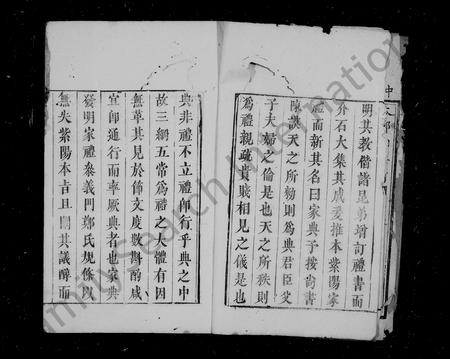 明其教偕諸昆弟增訂禮書而
介石大集其成爰推本紫陽家
禮而新其名曰家典予按尚書
陳謨天之所勑則爲典君臣父
子夫婦之倫是也天之所秩則
爲禮親疏貴賤相見之儀是也
典非禮不立禮卽行乎典之中
故三綱五常爲禮之大體有因
無革其見於節文度數斟酌咸
宜卽通行而率厥典者也家典
發明家禮叅義門鄭氏規條以
無失紫陽本旨且
其議醇而
FamilySearch International